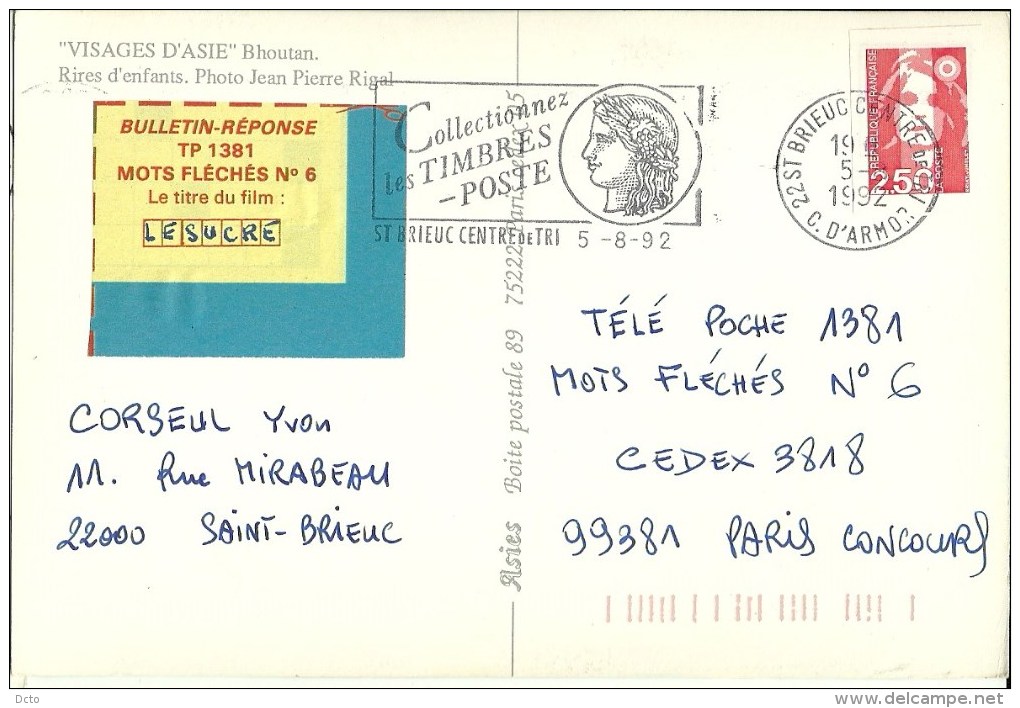 "VISAGES D'ASIE" Bhoutan.
Rires d'enfants. Photo Jean Pierre Rigal
BULLETIN-RÉPONSE
TP 1381
MOTS FLÉCHÉS No 6
Le titre du film :
LE SUCRE
Collectionnez
les TIMBRES
-POSTE
ST BRIEUC CENTRE DE TRI 5-8-92
22 ST BRIEUC CENTRE DE TRI
19
5-
1992
C. D'ARMOR
RÉPUBLIQUE FRANÇAISE
2.50
LA POSTE
Asies Boite postale 89 75222 Paris
TÉLÉ POCHE 1381
MOTS FLÉCHÉS No 6
CEDEX 3818
99381 PARIS CONCOURS
CORSEUL Yvon
11. Rue MIRABEAU
22000 SAINT-BRIEUC
Dcto
www.delcampe.net